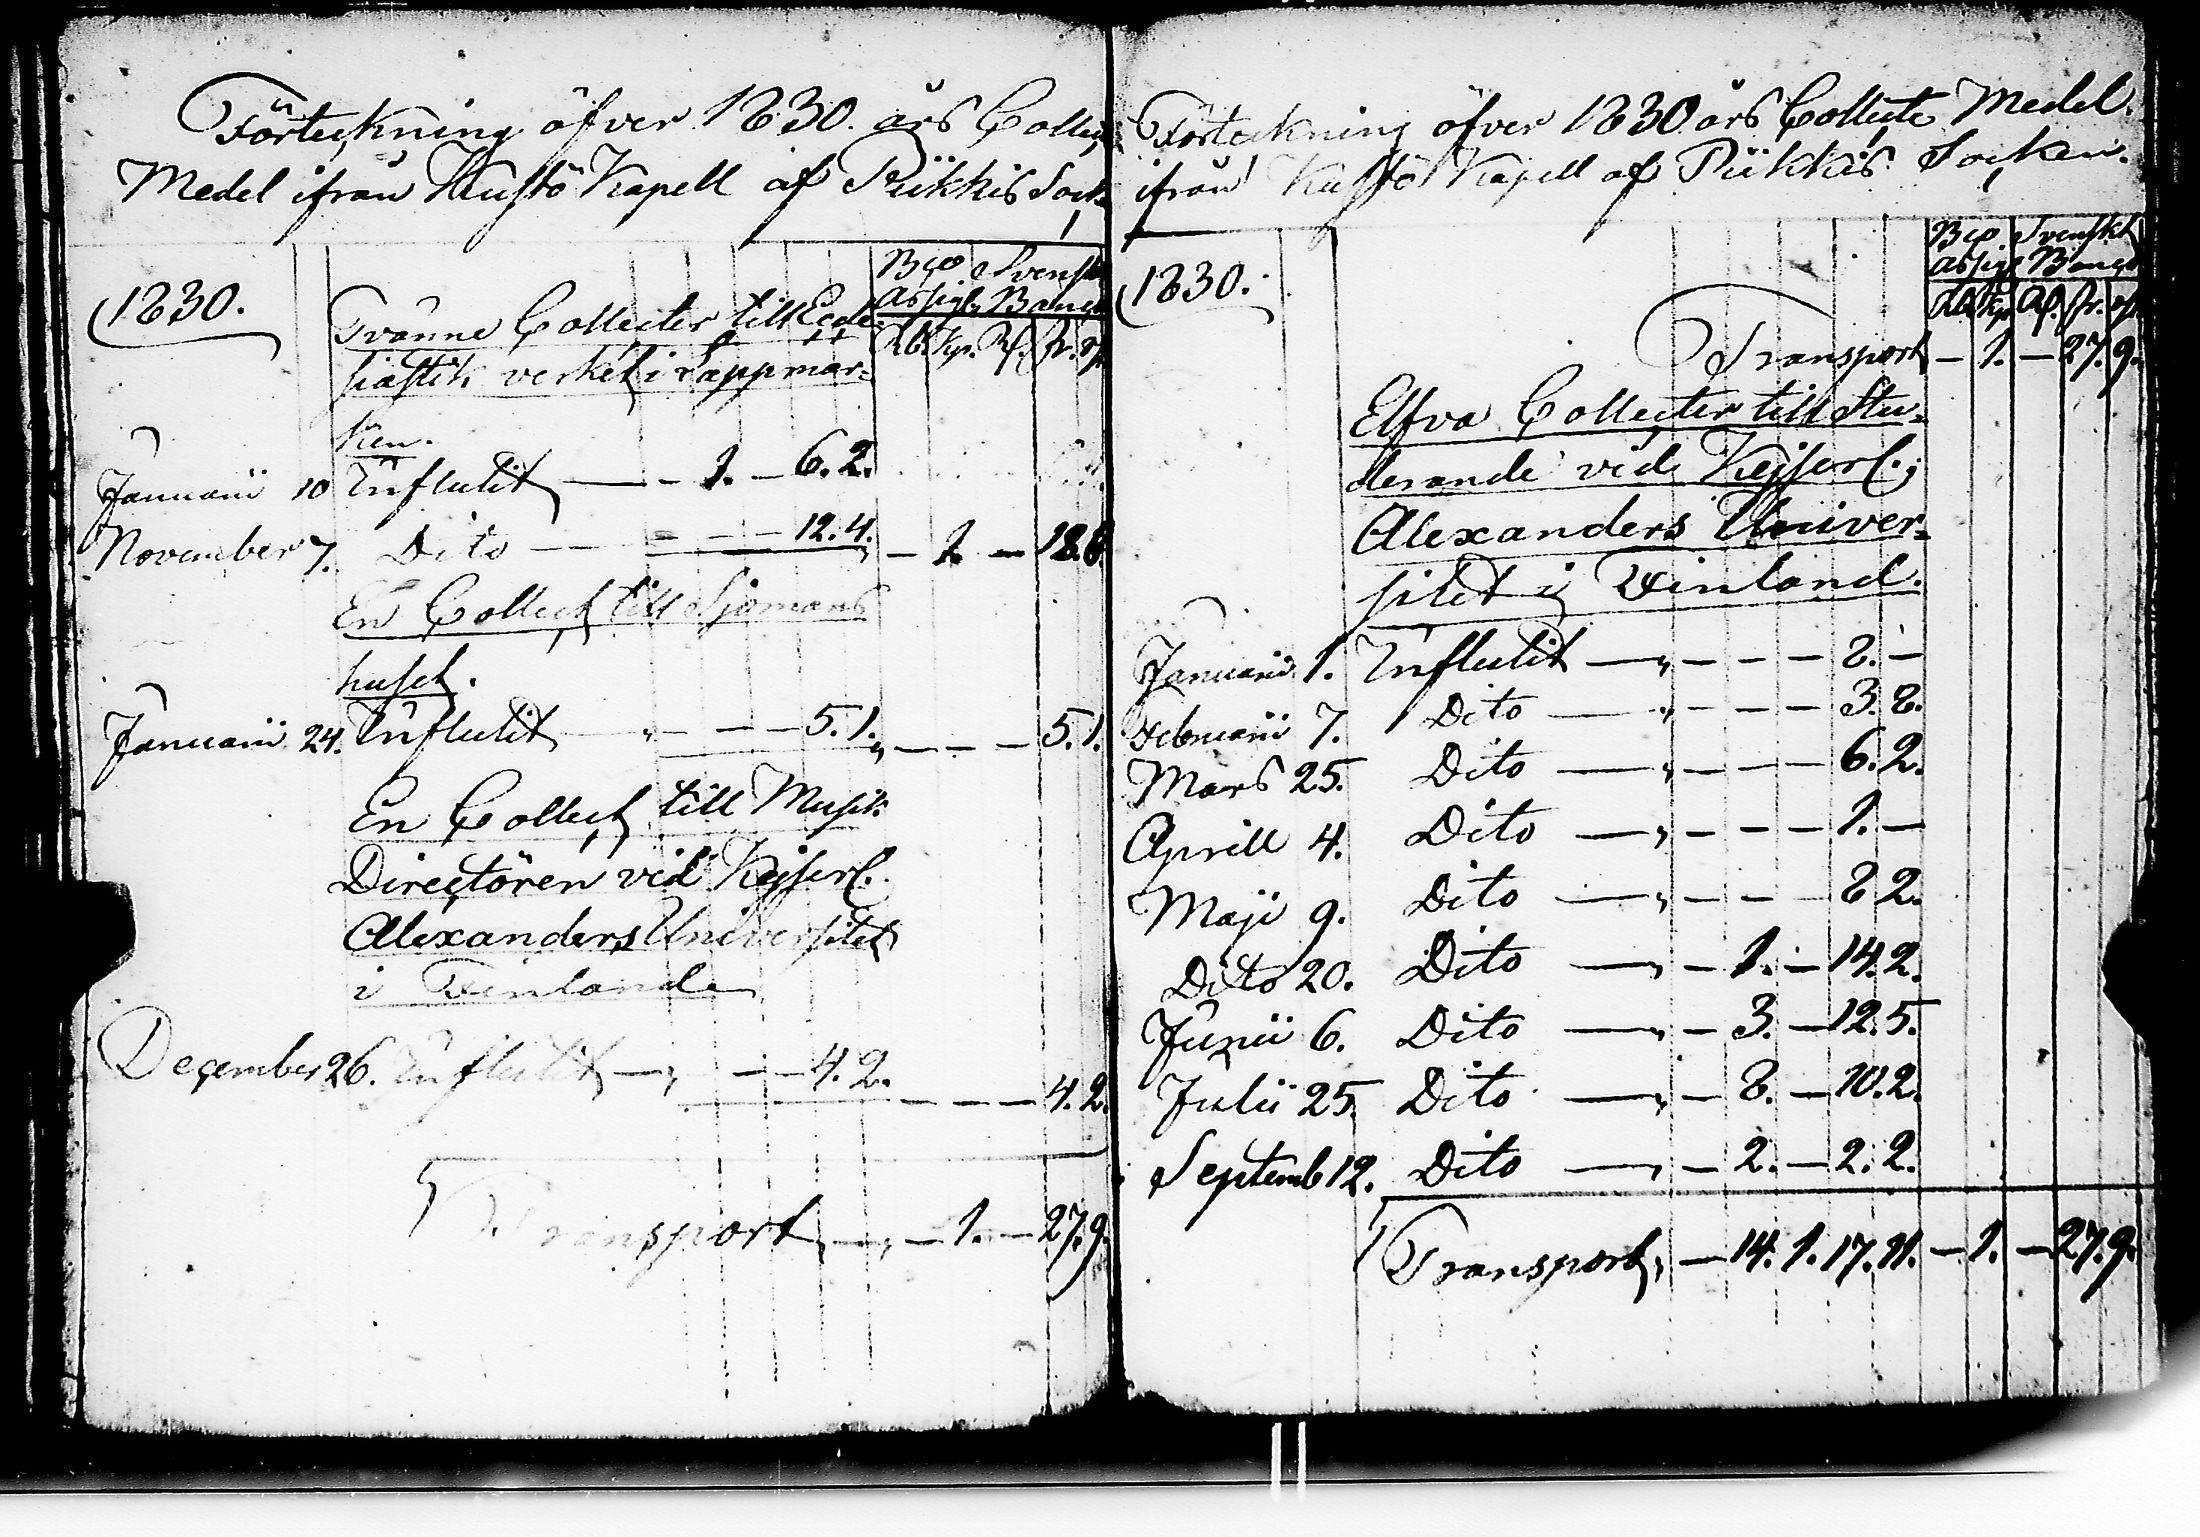 Förteckning öfver 1830. års Collect
Medel ifrån Kustö Kapell af Piikkis Sock
Bco Svenskt
assign. Banco
Rbl. Kp. Rf. sk. rst
1830.
Tvänne Collecter till Eccle-
siastik verket i Lappmar-
ken.
Januarii 10 Influtit — - 1. - 6. 2.
November 7. Dito — - - - 12. 4. - 1. - 18. 6.
En Collect till Sjömans
huset.
Januarii 24. Influtit „ - - - 5. 1. „ - - - 5. 1.
En Collect till Musik
Directören vid Kejserl.
Alexanders Universitet
i Finland
December 26. Influtit — „ - - 4. 2. - - - 4. 2.
Transport — „ - 1. - 27. 9.
Förteckning öfver 1830 års Collecte Medel
ifrån Kustö Kapell af Piikkis Socken.
Bco Svenskt
assign Banco
Rbl Kp Rf. sk. rst
1830.
Transport - 1. - 27. 9.
Elfva Collecter till Stu-
derande vid Kejserl.
Alexanders Univer-
sitet i Finland.
Januarii 1. Influtit — „ - - - 8. -
Februarii 7. Dito — „ - - - 3. 8.
Mars 25. Dito — „ - - - 6. 2.
Aprill 4. Dito — „ - - - 1. -
Maji 9. Dito — „ - - - 8 2.
Dito 20. Dito — „ - 1. - 14. 2.
Junii 6. Dito — „ - 3. - 12. 5.
Julii 25. Dito — „ - 8. - 10. 2.
Septemb 12. Dito — „ - 2. - 2. 2.
Transport „ - 14. 1. 17. 11. - 1. - 27. 9.